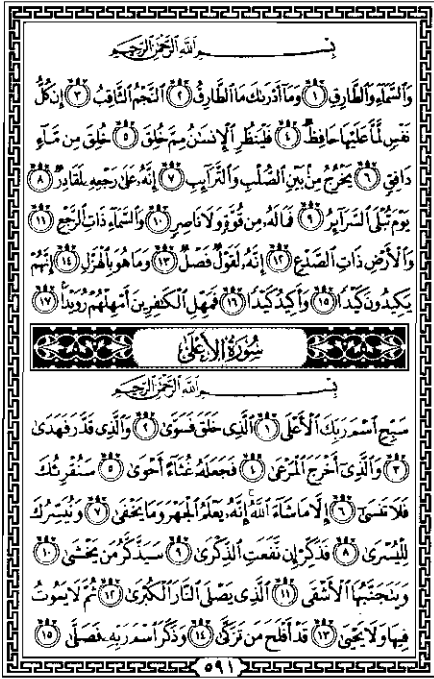 بِسْمِ اللَّهِ الرَّحْمَٰنِ الرَّحِيمِ
وَالسَّمَاءِ وَالطَّارِقِ ١ وَمَا أَدْرَىٰكَ مَا الطَّارِقُ ٢ النَّجْمُ الثَّاقِبُ ٣ إِن كُلُّ
نَفْسٍ لَّمَّا عَلَيْهَا حَافِظٌ ٤ فَلْيَنظُرِ الْإِنسَٰنُ مِمَّ خُلِقَ ٥ خُلِقَ مِن مَّاءٍ
دَافِقٍ ٦ يَخْرُجُ مِنۢ بَيْنِ الصُّلْبِ وَالتَّرَائِبِ ٧ إِنَّهُۥ عَلَىٰ رَجْعِهِۦ لَقَادِرٌ ٨
يَوْمَ تُبْلَى السَّرَائِرُ ٩ فَمَا لَهُۥ مِن قُوَّةٍ وَلَا نَاصِرٍ ١٠ وَالسَّمَاءِ ذَاتِ الرَّجْعِ ١١
وَالْأَرْضِ ذَاتِ الصَّدْعِ ١٢ إِنَّهُۥ لَقَوْلٌ فَصْلٌ ١٣ وَمَا هُوَ بِالْهَزْلِ ١٤ إِنَّهُمْ
يَكِيدُونَ كَيْدًا ١٥ وَأَكِيدُ كَيْدًا ١٦ فَمَهِّلِ الْكَٰفِرِينَ أَمْهِلْهُمْ رُوَيْدًۢا ١٧
سُورَةُ الْأَعْلَىٰ
بِسْمِ اللَّهِ الرَّحْمَٰنِ الرَّحِيمِ
سَبِّحِ اسْمَ رَبِّكَ الْأَعْلَى ١ الَّذِي خَلَقَ فَسَوَّىٰ ٢ وَالَّذِي قَدَّرَ فَهَدَىٰ
٣ وَالَّذِي أَخْرَجَ الْمَرْعَىٰ ٤ فَجَعَلَهُۥ غُثَاءً أَحْوَىٰ ٥ سَنُقْرِئُكَ
فَلَا تَنسَىٰ ٦ إِلَّا مَا شَاءَ اللَّهُ ۚ إِنَّهُۥ يَعْلَمُ الْجَهْرَ وَمَا يَخْفَىٰ ٧ وَنُيَسِّرُكَ
لِلْيُسْرَىٰ ٨ فَذَكِّرْ إِن نَّفَعَتِ الذِّكْرَىٰ ٩ سَيَذَّكَّرُ مَن يَخْشَىٰ ١٠
وَيَتَجَنَّبُهَا الْأَشْقَى ١١ الَّذِي يَصْلَى النَّارَ الْكُبْرَىٰ ١٢ ثُمَّ لَا يَمُوتُ
فِيهَا وَلَا يَحْيَىٰ ١٣ قَدْ أَفْلَحَ مَن تَزَكَّىٰ ١٤ وَذَكَرَ اسْمَ رَبِّهِۦ فَصَلَّىٰ ١٥
٥٩١